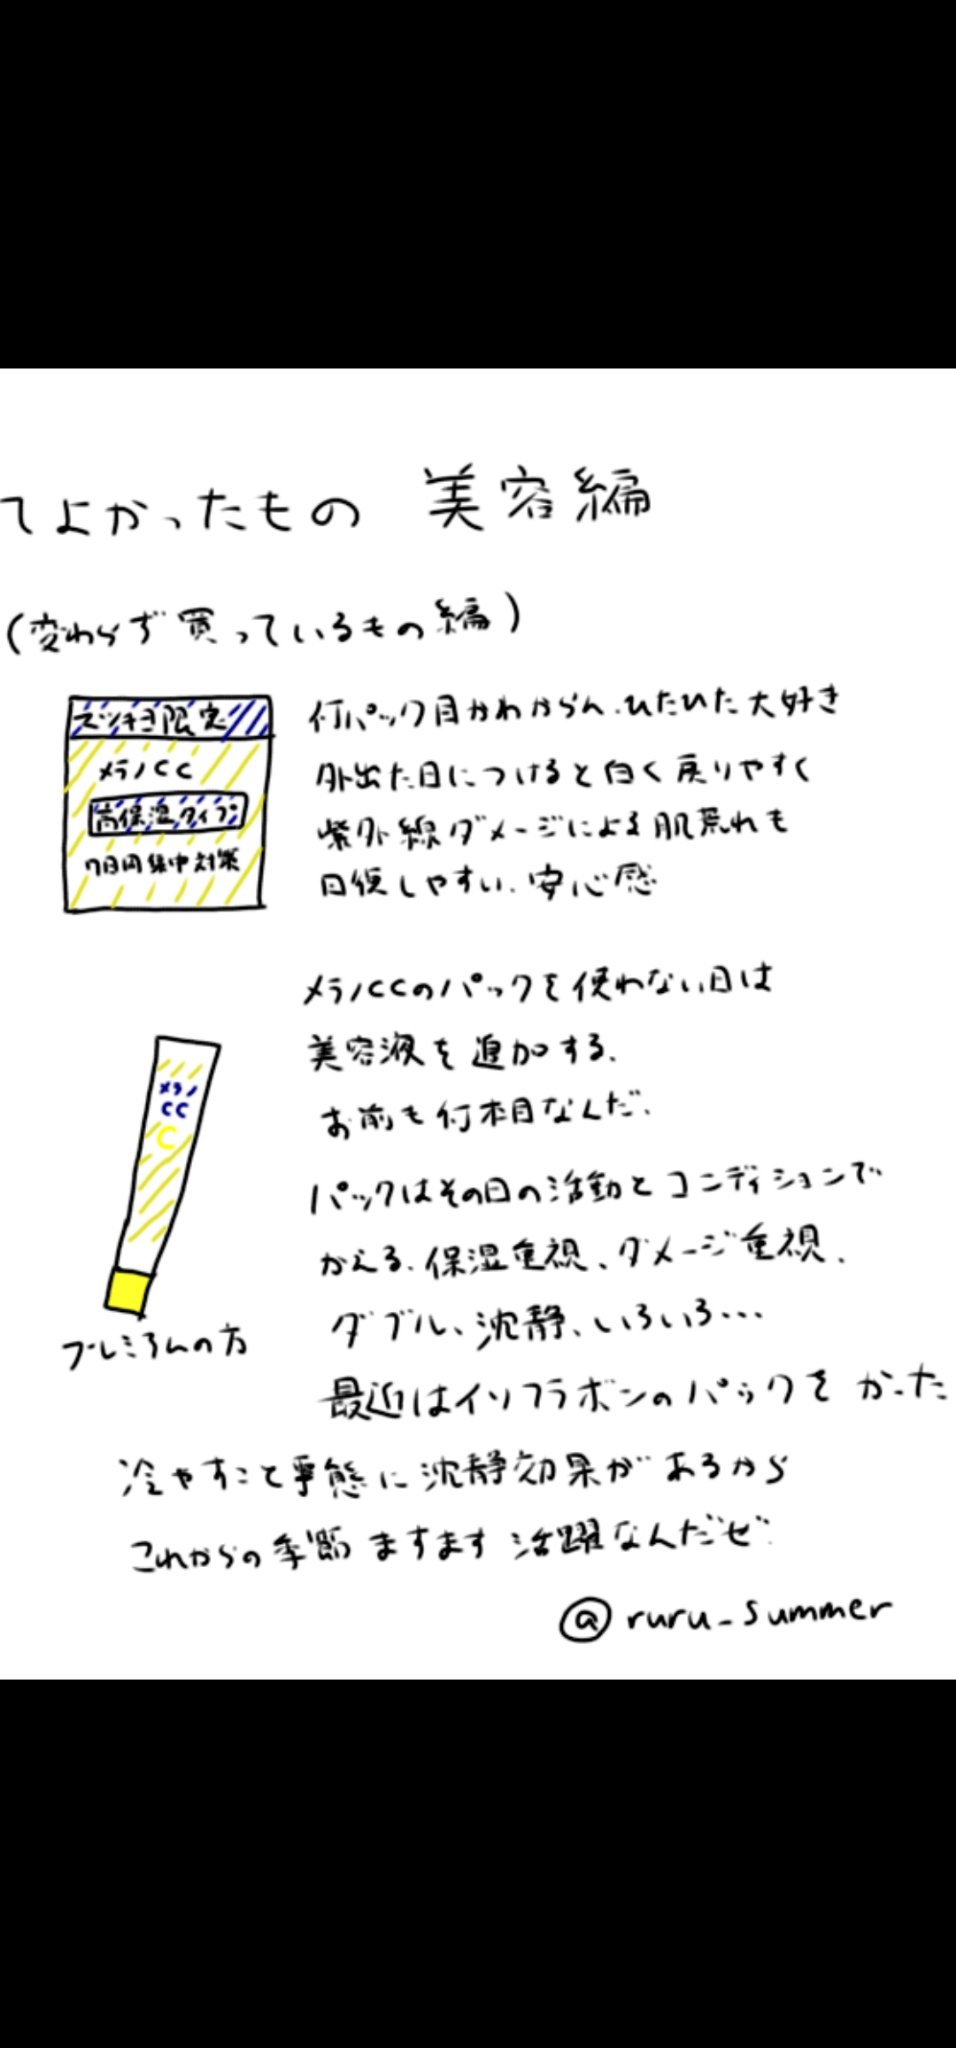 てよかったもの 美容編
(変わらず買っているもの編)
スツキヨ限定
メラノCC
高保湿タイプ
7日間集中対策
何パック目かわからん.ひたひた大好き
外出た日につけると白く戻りやすく
紫外線ダメージによる肌荒れも
回復しやすい.安心感
メラノCCのパックを使わない日は
美容液を追加する.
お前も何本目なんだ.
メラノ
CC
C
プレミアムの方
パックはその日の活動とコンディションで
かえる.保湿重視、ダメージ重視.
ダブル、沈静、いろいろ...
最近はイソフラボンのパックをかった
冷やすこと事態に沈静効果があるから
これからの季節ますます活躍なんだぜ.
@ruru_summer